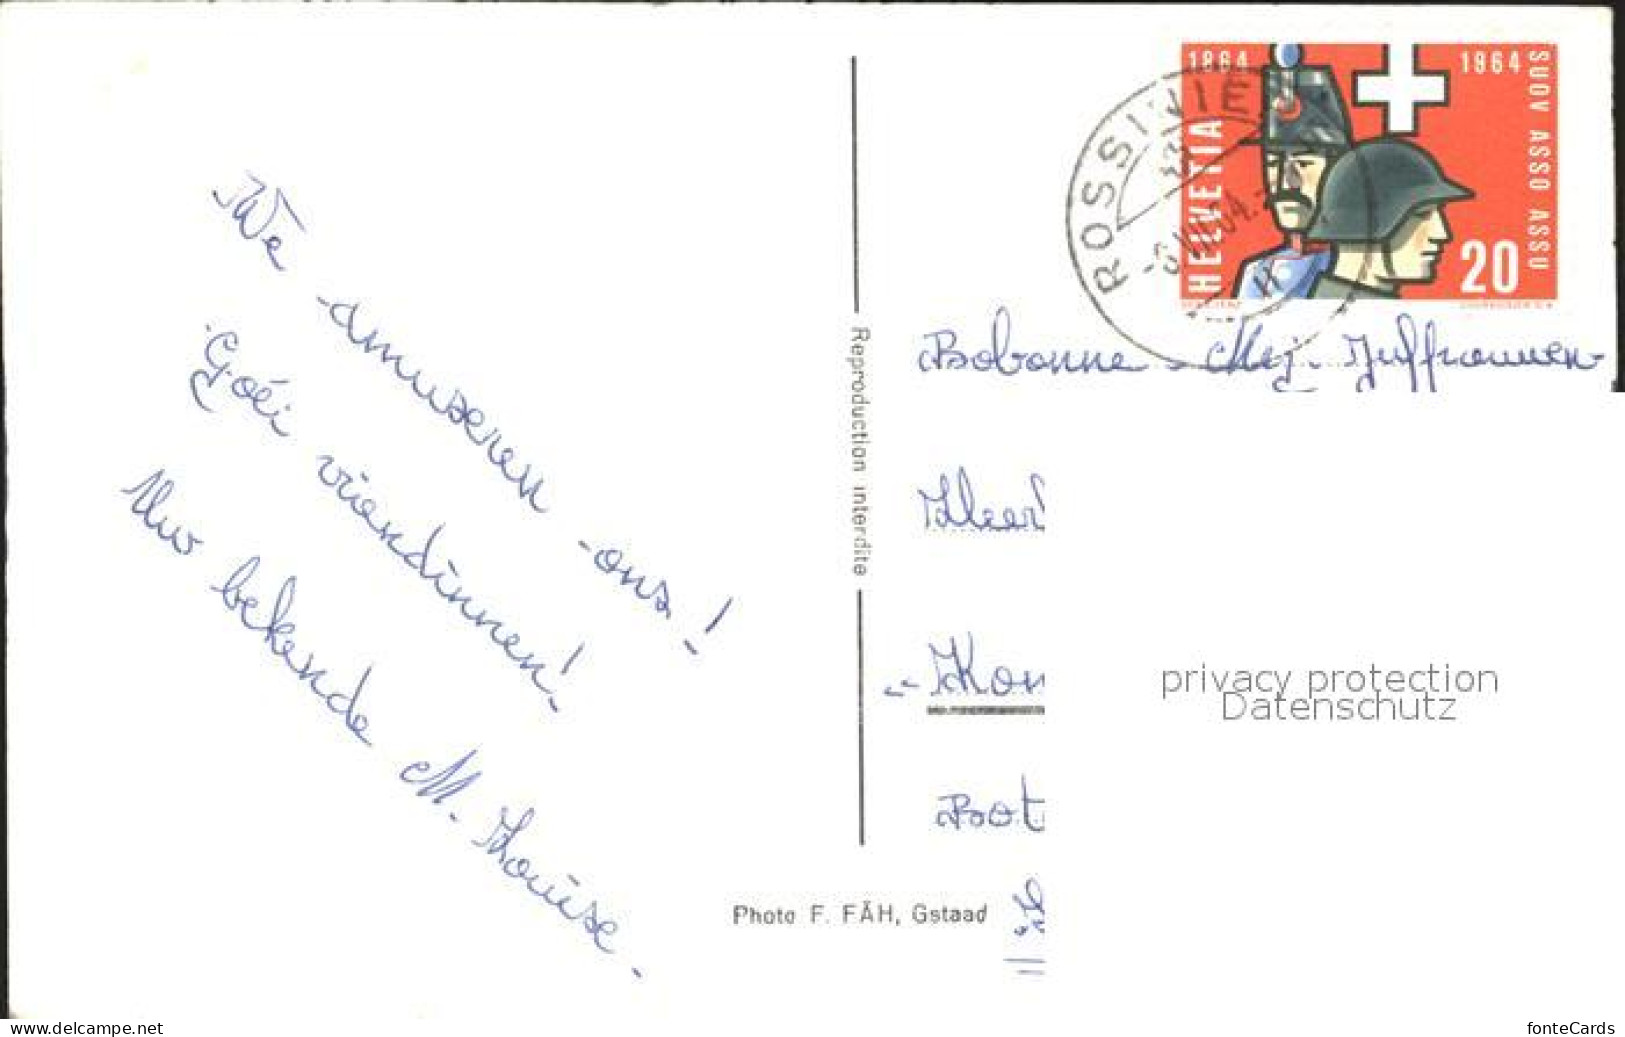 We -amuseren -ons!
Goéi vriendinnen!
Uw bekende M. Louise -
Reproduction interdite
Photo F. FÄH, Gstaad
1864
1964
HELVETIA
SUOV ASSO ASSU
20
ROSSINIÈ
Bobonne - Mej. Juffrouwen
Heer
"Kon
Bot
privacy protection
Datenschutz
www.delcampe.net
fonteCards